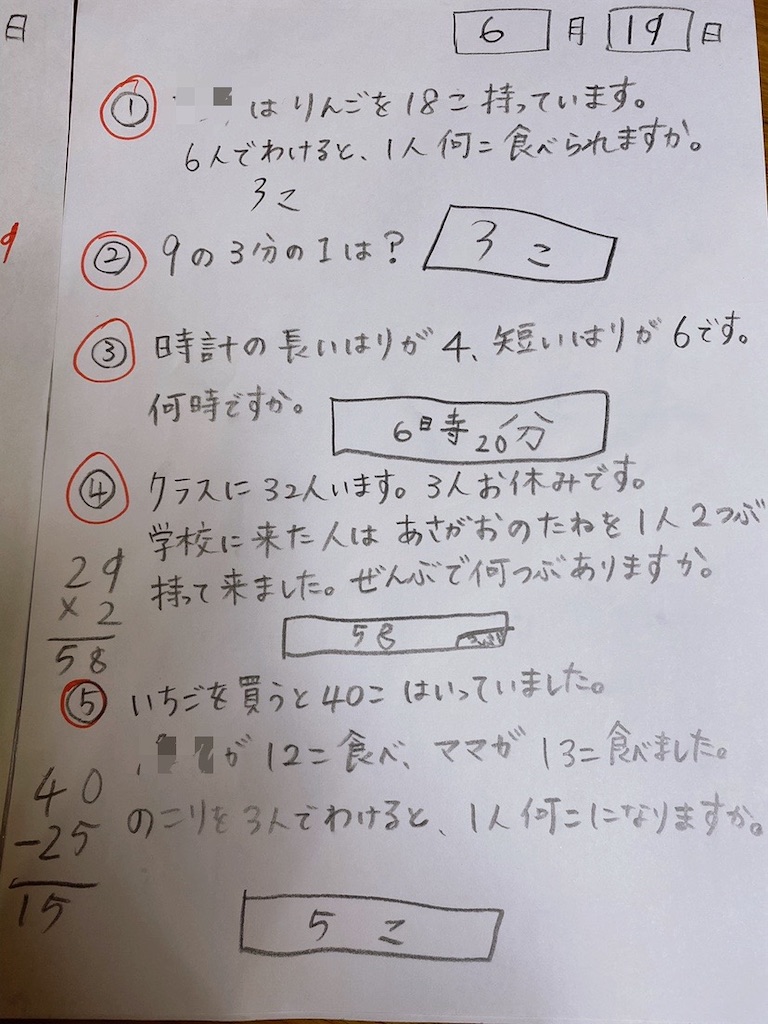 日
6月19日
① はりんごを18こ持っています。
6人でわけると、1人何こ食べられますか。
3こ
② 9の3分の1は?
3こ
③ 時計の長いはりが4、短いはりが6です。
何時ですか。
6時20分
④ クラスに32人います。3人お休みです。
学校に来た人はあさがおのたねを1人2つぶ
持って来ました。ぜんぶで何つぶありますか。
29
×2
58
58
⑤ いちごを買うと40こはいっていました。
が12こ食べ、ママが13こ食べました。
のこりを3人でわけると、1人何こになりますか。
40
-25
15
5こ